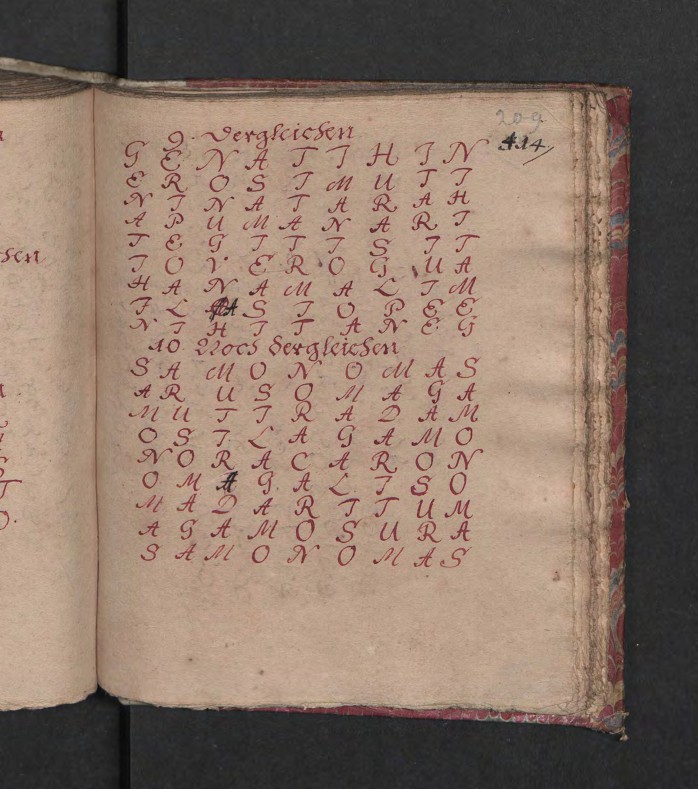 209
414
9. Vergleichen
G E N A T T H T N
E R O S T M U T T
N T N A T A R A H
A P U M A N A R T
T E G T T T S T T
T O V E R O G U A
H A N A M A L T M
T L A S T O P E E
N T H T T A N E G
10. Noch dergleichen
S A M O N O M A S
A R U S O M A G A
M U T T R A D A M
O S T L A G A M O
N O R A C A R O N
O M A G A L T S O
M A D A R T T U M
A G A M O S U R A
S A M O N O M A S